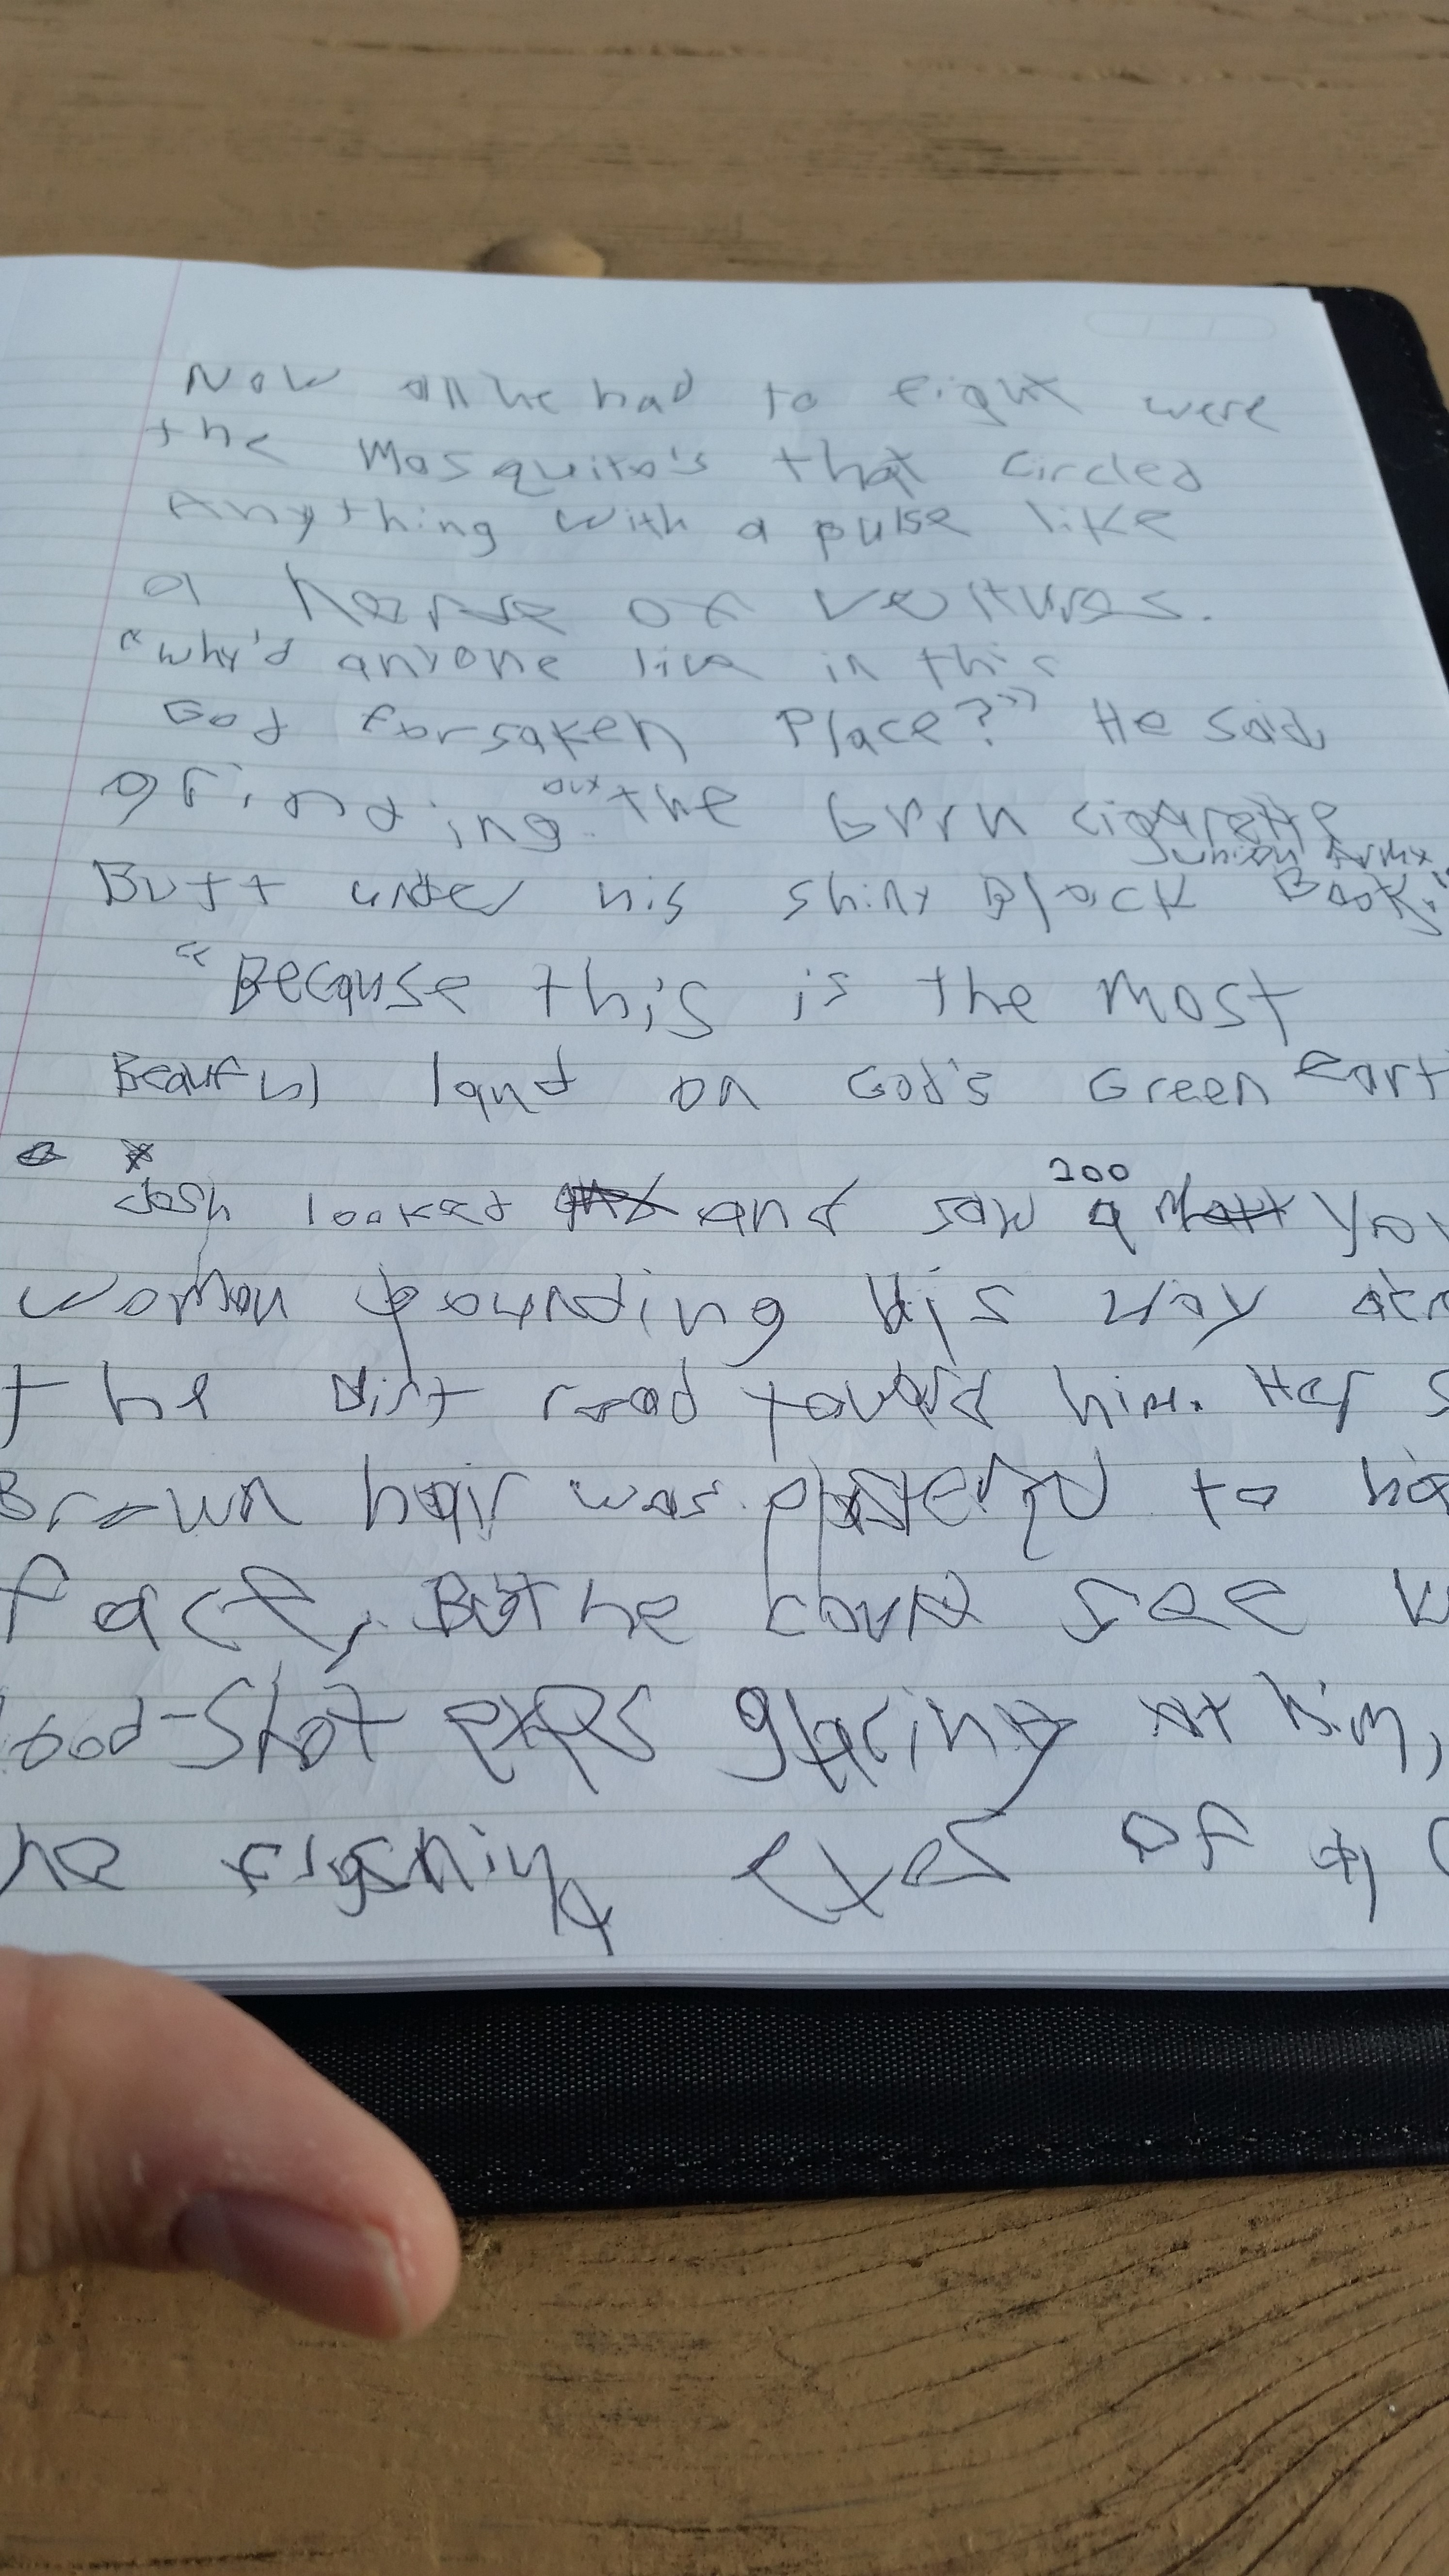 Now all he had to fight were
the Mosquito's that circled
Anything with a pulse like
a of
"why'd anyone live in this
God forsaken Place?" He said,
grinding out the cigarette
Union Army
Butt under his shiny Black Boots
"Because this is the most
land on God's Green Eart
Josh looked and saw a
200
woman pounding his way
the dirt road toward him. Her
Brown hair was to
face, But he could see
lood-Shot eyes glaring at him,
he eyes of a